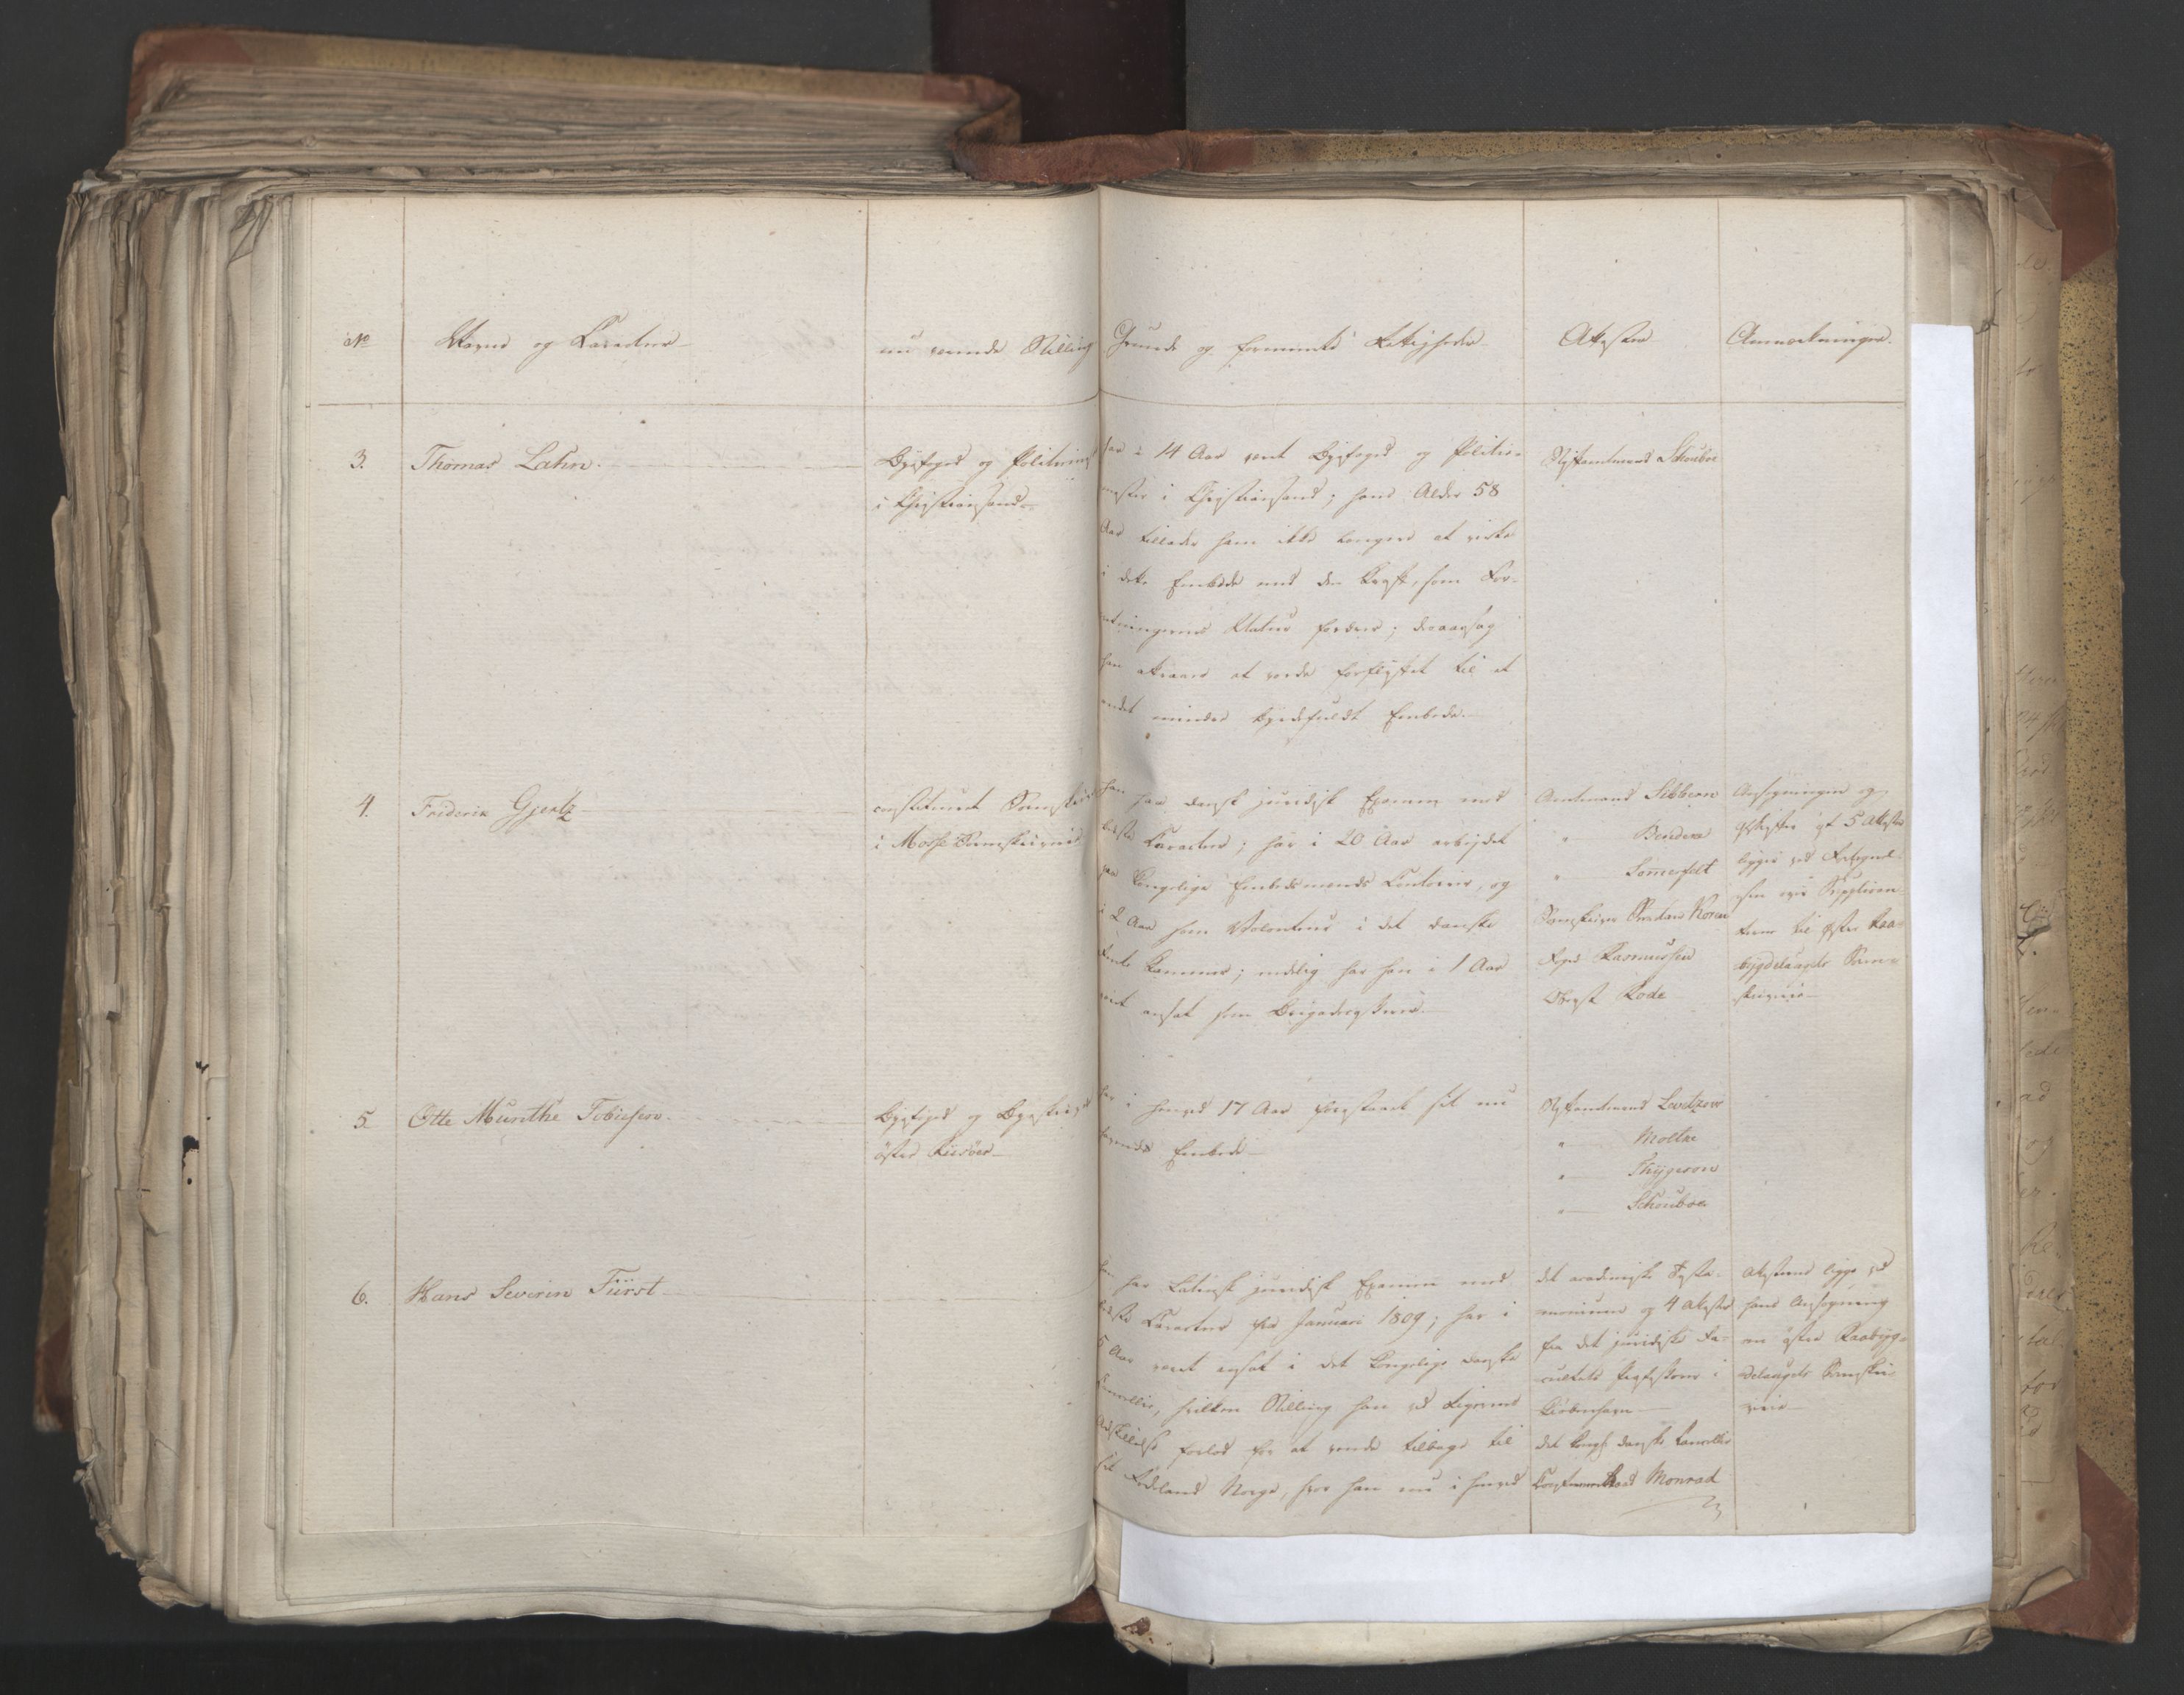 No
Navne og Caracteer
nu værende Stilling
Grunde og formeente Rettigheder
Attester
Anmærkninger.
3.
Thomas Lahn.
Byefoged og Politimest
i Christiansand
har i 14 Aar været Byefoged og Politie-
mester i Christiansand; hans Alder 58
Aar tillader ham ikke længere at virke
i dette Embede med den Kraft, som For-
retningernes Natur fordrer; deraarsag
han attraaer at vorde forflyttet til et
andet mindre byrdefuldt Embede.
Stiftamtmand Schouboe
4.
Friderik Gjertz
constitueret Sorenskriver
i Mosse Sorenskriverie
han har dansk juridisk Examen med
bedste Caracteer; har i 20 Aar arbejdet
paa Kongelige Embedsmænds Contoirer, og
i 2 Aar som Volonteur i det danske
Rente Kammer; endelig har han i 1 Aar
været ansat som Brigadeskriver.
Amtmand Sibbern
" Bendeke
" Sommerfelt
Sorenskriver Sverdrup Koren
Foged Rasmussen
Oberst Rode
Ansøgningen og
Gjenparter af 5 Attester
ligger ved Fortegnel-
sen over Supplican-
terne til Øster Raa-
bygdelaugets Soren-
skriverie
5.
Otte Munthe Tobiesen.
Byefoged og Byeskriver
öster Riisöer
har i henved 17 Aar forestaaet sit nu
havende Embede
Stiftamtmand Levetzow
" Moltke
" Thygeson
" Schouboe
6.
Hans Severin Fürst
han har Latinsk juridisk Examen med
bedste Caracteer fra Januari 1809; har i
5 Aar været ansat i det Kongelige danske
Cancellie, hvilken Stilling han ved Rigernes
Adskillelse forlod for at vende tilbage til
sit Fødeland Norge, hvor han nu i henved
det academiske Testa-
monium og 4 Attester
fra det juridiske Fa-
cultets Professorer i
Kiöbenhavn
det Kongl: danske Cancellie
Monrad
Attesterne ligge ved
hans Ansøgning
om öster Raabygde-
delaugets Sorenskri-
verie